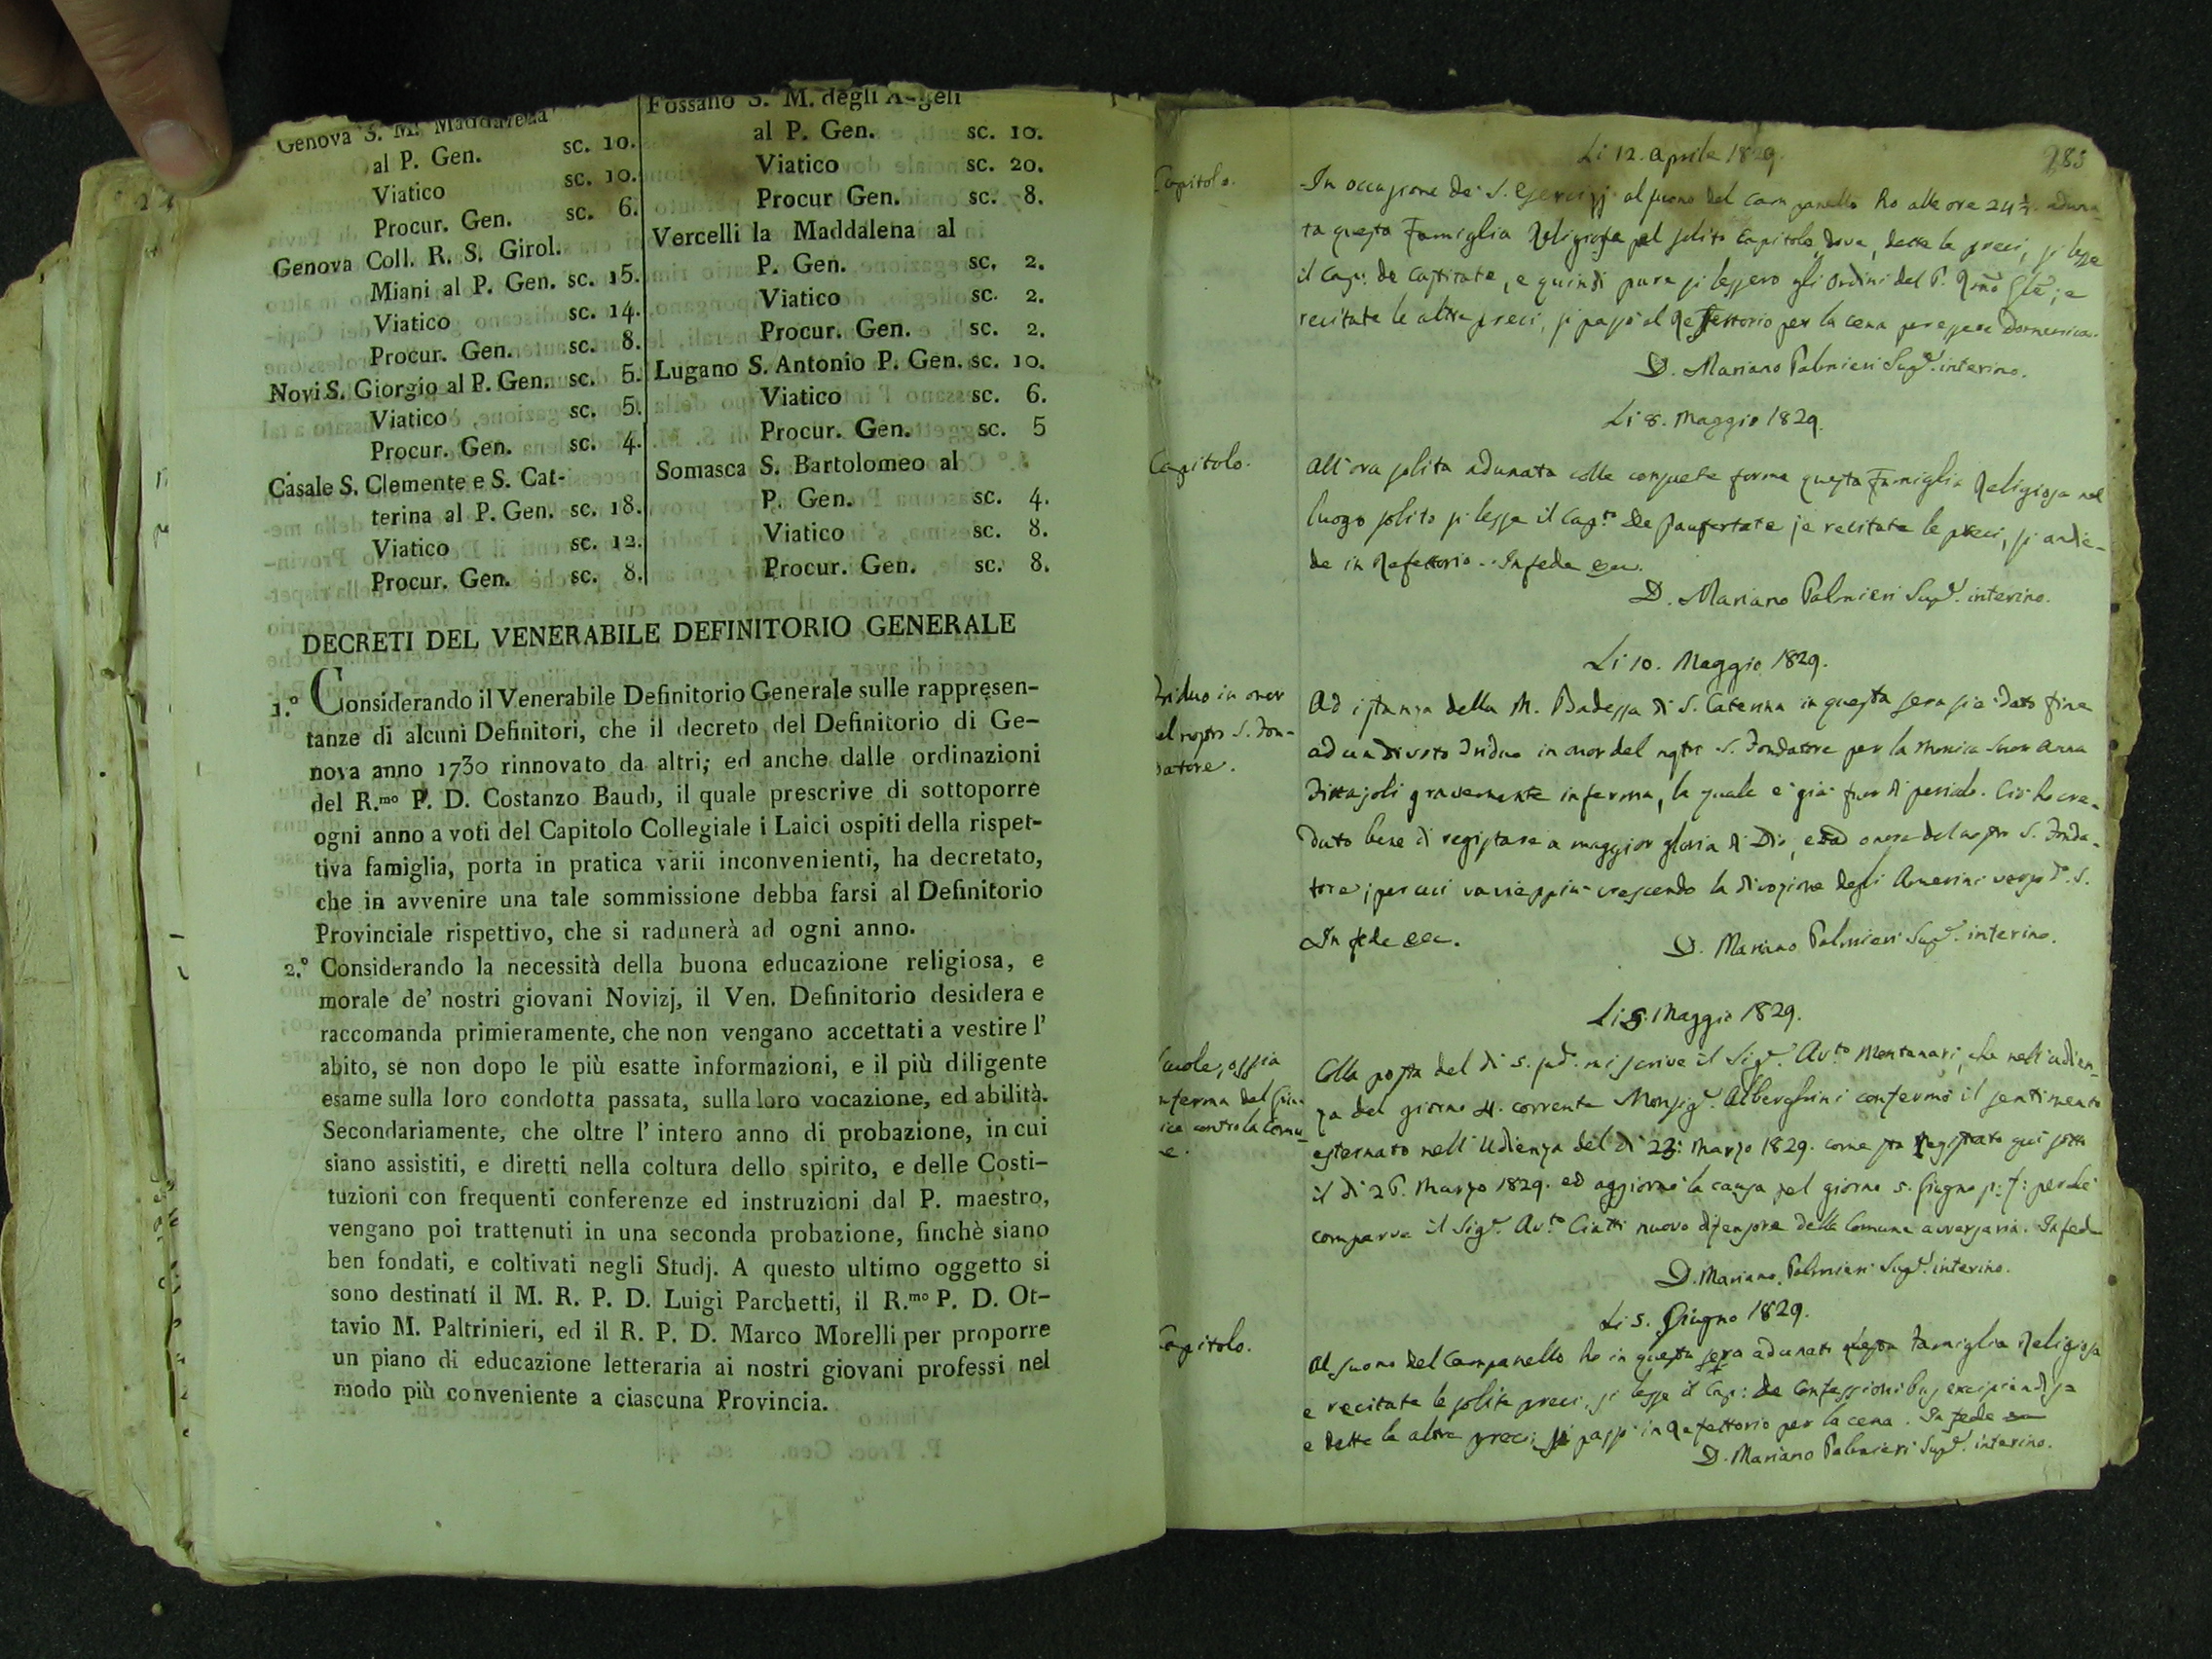 Genova S. M. Maddalena
al P. Gen. sc. 10.
Viatico sc. 10.
Procur. Gen. sc. 6.
Genova Coll. R. S. Girol.
Miani al P. Gen. sc. 15.
Viatico sc. 14.
Procur. Gen. sc. 8.
Novi S. Giorgio al P. Gen. sc. 5.
Viatico sc. 5.
Procur. Gen. sc. 4.
Casale S. Clemente e S. Cat-
terina al P. Gen. sc. 18.
Viatico sc. 12.
Procur. Gen. sc. 8.
Fossano S. M. degli Angeli
al P. Gen. sc. 10.
Viatico sc. 20.
Procur Gen. sc. 8.
Vercelli la Maddalena al
P. Gen. sc. 2.
Viatico sc. 2.
Procur. Gen. sc. 2.
Lugano S. Antonio P. Gen. sc. 10.
Viatico sc. 6.
Procur. Gen. sc. 5
Somasca S. Bartolomeo al
P. Gen. sc. 4.
Viatico sc. 8.
Procur. Gen. sc. 8.
DECRETI DEL VENERABILE DEFINITORIO GENERALE
1.° Considerando il Venerabile Definitorio Generale sulle rappresen-
tanze di alcuni Definitori, che il decreto del Definitorio di Ge-
nova anno 1730 rinnovato da altri; ed anche dalle ordinazioni
del R.mo P. D. Costanzo Baudi, il quale prescrive di sottoporre
ogni anno a voti del Capitolo Collegiale i Laici ospiti della rispet-
tiva famiglia, porta in pratica varii inconvenienti, ha decretato,
che in avvenire una tale sommissione debba farsi al Definitorio
Provinciale rispettivo, che si radunerà ad ogni anno.
2.° Considerando la necessità della buona educazione religiosa, e
morale de' nostri giovani Novizj, il Ven. Definitorio desidera e
raccomanda primieramente, che non vengano accettati a vestire l'
abito, se non dopo le più esatte informazioni, e il più diligente
esame sulla loro condotta passata, sulla loro vocazione, ed abilità.
Secondariamente, che oltre l' intero anno di probazione, in cui
siano assistiti, e diretti nella coltura dello spirito, e delle Costi-
tuzioni con frequenti conferenze ed instruzioni dal P. maestro,
vengano poi trattenuti in una seconda probazione, finchè siano
ben fondati, e coltivati negli Studj. A questo ultimo oggetto si
sono destinati il M. R. P. D. Luigi Parchetti, il R.mo P. D. Ot-
tavio M. Paltrinieri, ed il R. P. D. Marco Morelli per proporre
un piano di educazione letteraria ai nostri giovani professi nel
modo più conveniente a ciascuna Provincia.
283
Li 12. Aprile 1829.
Capitolo.
In occasione de' S. Esercizj al suono del campanello ho alle ore 24 ½ aduna-
ta questa Famiglia Religiosa nel solito Capitolo, dove, dette le preci, si lesse
il Cap: de Castitate, e quindi pure si lessero gli Ordini del P. Rmo Gle; e
recitate le altre preci, si passò al Refettorio per la cena per essere Domenica.
D. Mariano Palmieri Supe. interino.
Li 8. Maggio 1829.
Capitolo.
All'ora solita adunata colle consuete forme questa Famiglia Religiosa nel
luogo solito si lesse il Cap.to De Paupertate; e recitate le preci, si andie-
de in Refettorio. In fede ecc.
D. Mariano Palmieri Supe. interino.
Li 10. Maggio 1829.
Triduo in onor
del nostro S. Fon-
datore.
Ad istanza della M. Badessa di S. Caterina in questa sera si è dato fine
ad un divoto Triduo in onor del nostro S. Fondatore per la Monica Suor Anna
gravemente inferma, la quale è già fuor di pericolo. Ciò ho cre-
duto bene di registrare a maggior gloria di Dio, ed ad onore del nostro S. Fonda-
tore; per cui va vieppiù crescendo la divozione degli Amerini verso d.o S.
In fede ecc.
D. Mariano Palmieri Supe. interino.
Li 8. Maggio 1829.
Scuole, ossia
conferma del Giu-
dice contro la Comu-
ne.
Colla posta del dì 5. sud. mi scrive il Sige. Av.to Montanari, che nell'udien-
za del giorno 4. corrente Monsige. Alberghini confermò il sentimento
esternato nell'Udienza del dì 23: Marzo 1829. come sta registrato qui sotto
il dì 26. Marzo 1829. ed aggiornò la causa pel giorno 5. Giugno p: f: perchè
comparve il Sige. Av.to Ciatti nuovo difensore della Comune avversaria. In fede
D. Mariano Palmieri Supe. interino.
Li 5. Giugno 1829.
Capitolo.
Al suono del Campanello ho in questa sera adunata questa Famiglia Religiosa
e recitate le solite preci, si lesse il Cap: de Confessionibus excipiendis
e dette le altre preci, si passò in Refettorio per la cena. In fede
D. Mariano Palmieri Supe. interino.